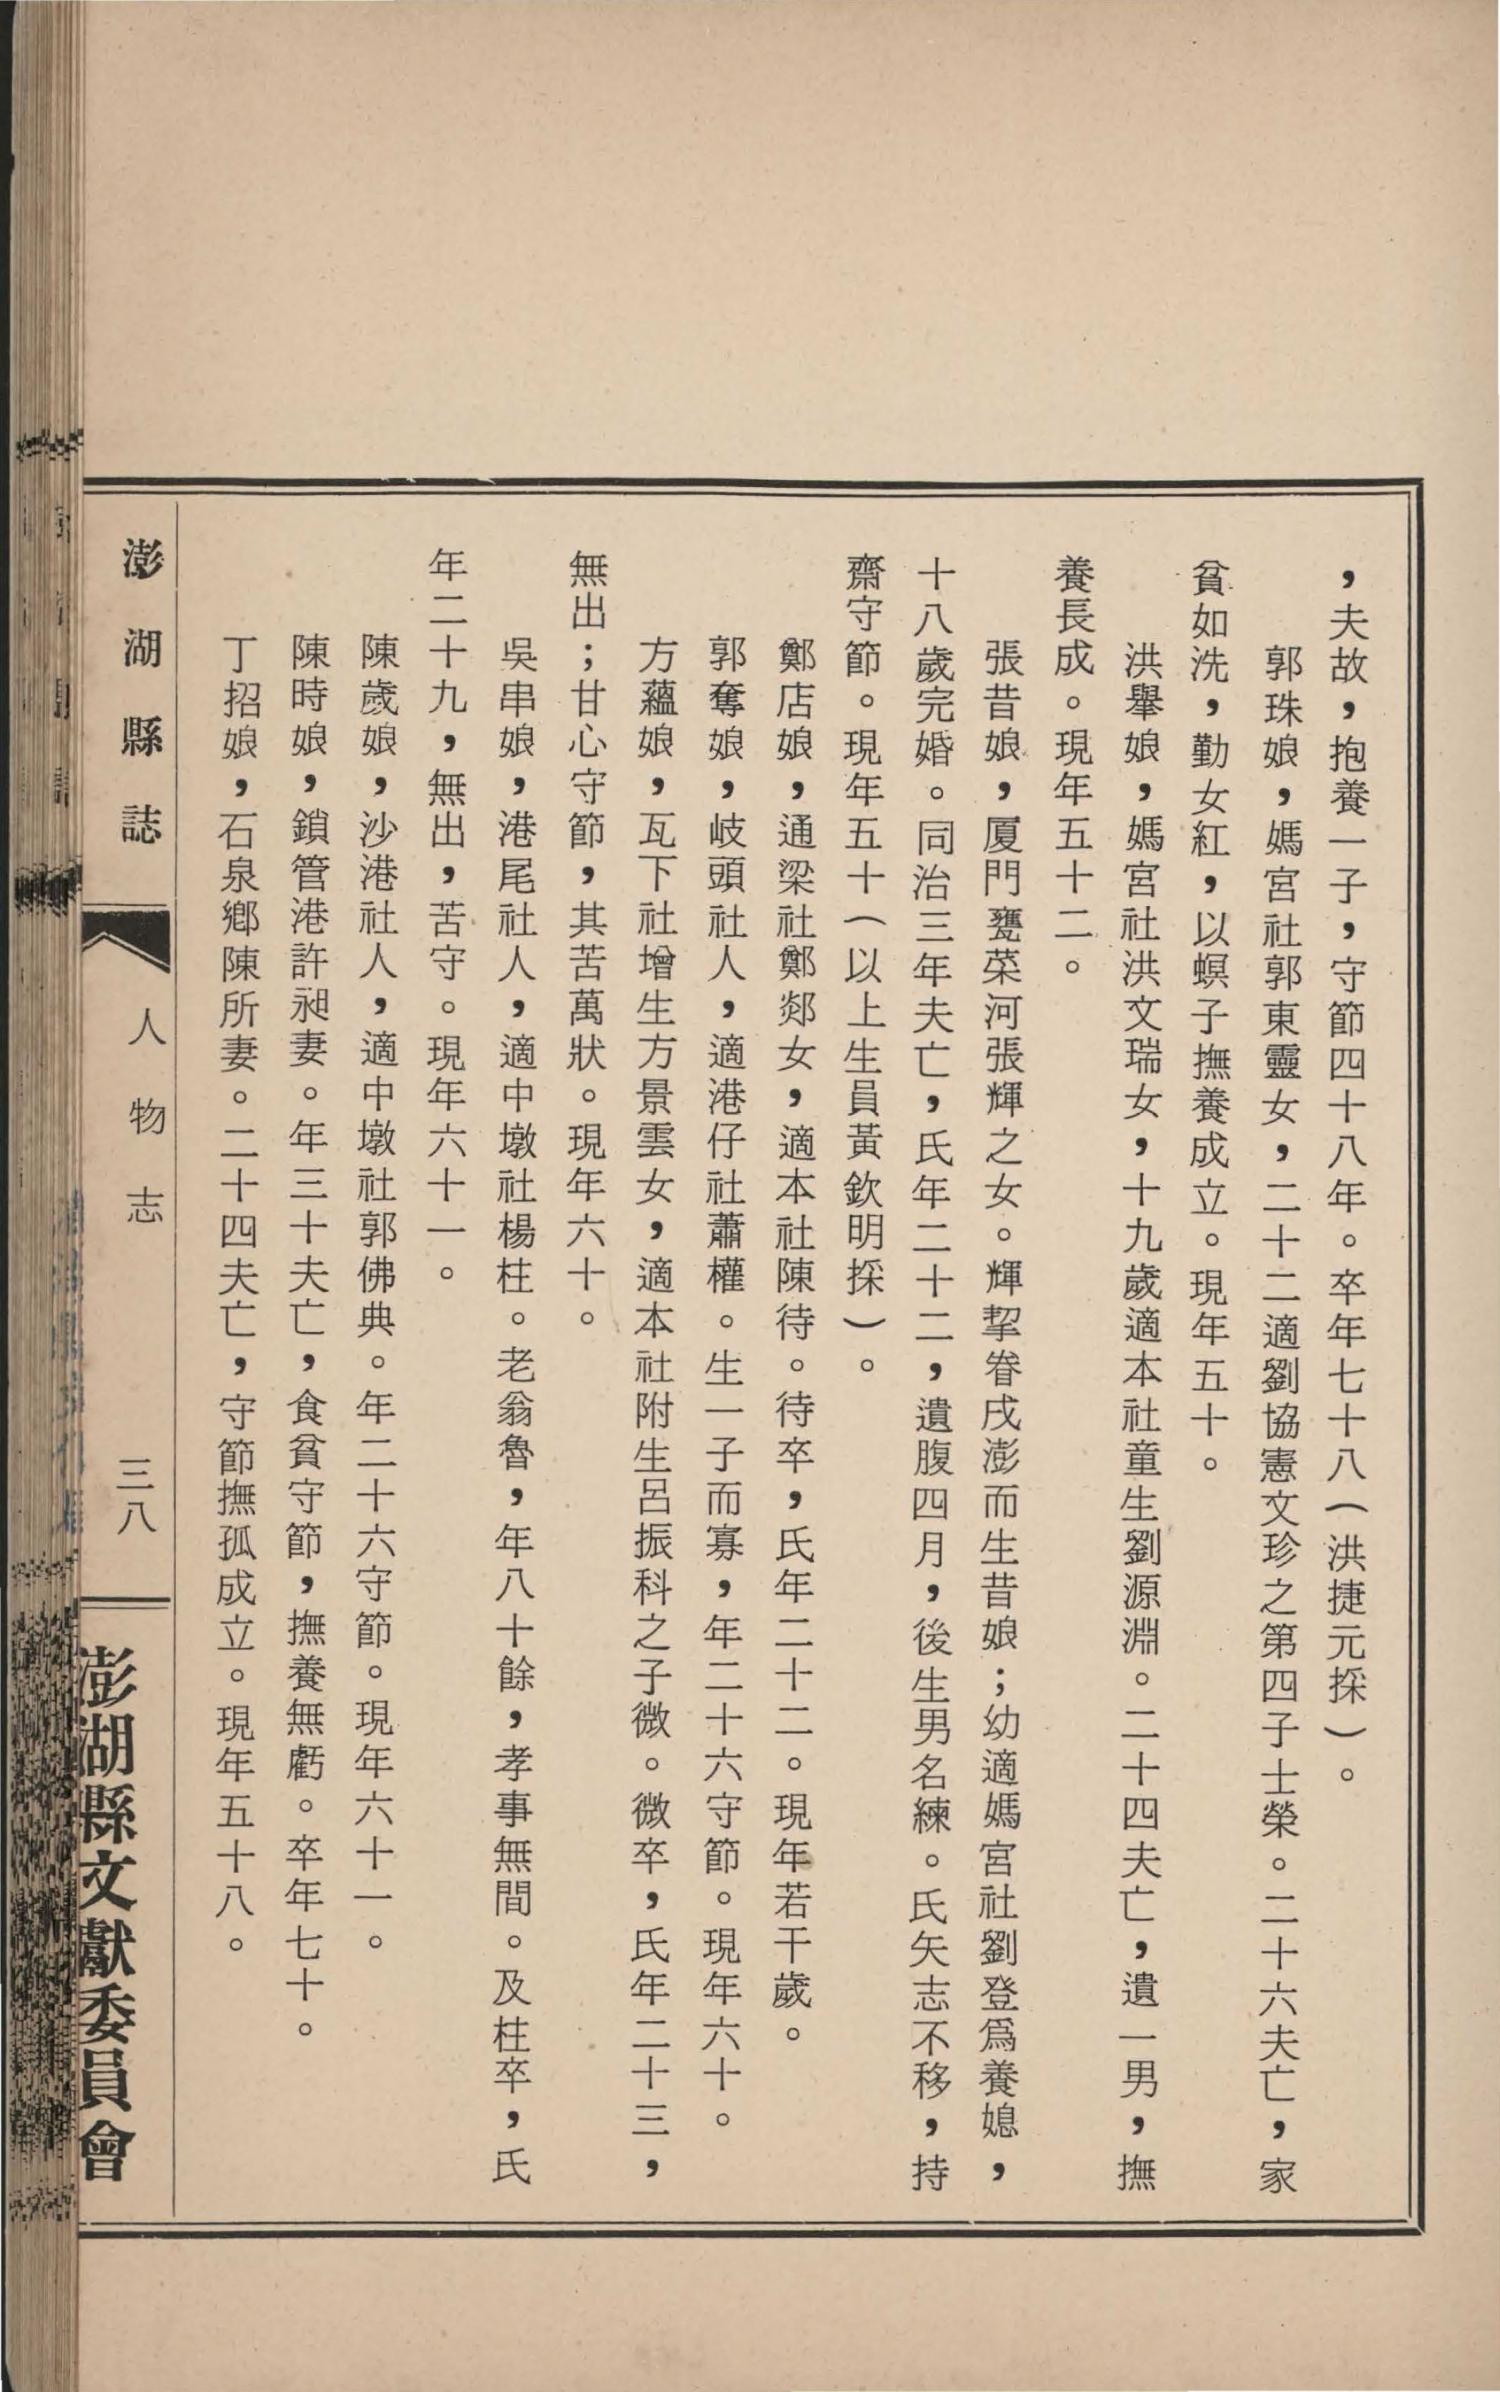 ，夫故，抱養一子，守節四十八年。卒年七十八（洪捷元採）。
郭珠娘，媽宮社郭東靈女，二十二適劉協憲文珍之第四子士榮。二十六夫亡，家
貧如洗，勤女紅，以螟子撫養成立。現年五十。
洪舉娘，媽宮社洪文瑞女，十九歲適本社童生劉源淵。二十四夫亡，遺一男，撫
養長成。現年五十二。
張昔娘，厦門甕菜河張輝之女。輝挈眷戍澎而生昔娘；幼適媽宮社劉登爲養媳，
十八歲完婚。同治三年夫亡，氏年二十二，遺腹四月，後生男名練。氏矢志不移，持
齋守節。現年五十（以上生員黃欽明採）。
鄭店娘，通梁社鄭郯女，適本社陳待。待卒，氏年二十二。現年若干歲。
郭奪娘，岐頭社人，適港仔社蕭權。生一子而寡，年二十六守節。現年六十。
方蘊娘，瓦下社增生方景雲女，適本社附生呂振科之子微。微卒，氏年二十三，
無出；甘心守節，其苦萬狀。現年六十。
吳串娘，港尾社人，適中墩社楊柱。老翁魯，年八十餘，孝事無間。及柱卒，氏
年二十九，無出，苦守。現年六十一。
陳歲娘，沙港社人，適中墩社郭佛典。年二十六守節。現年六十一。
陳時娘，鎖管港許昶妻。年三十夫亡，食貧守節，撫養無虧。卒年七十。
丁招娘，石泉鄉陳所妻。二十四夫亡，守節撫孤成立。現年五十八。
澎湖縣誌
人物志
三八
澎湖縣文獻委員會